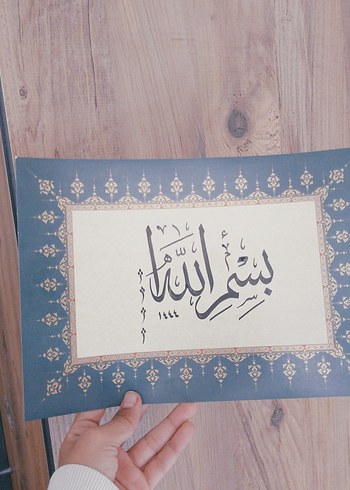 بِسْمِ اللّٰه
١٤٤٤